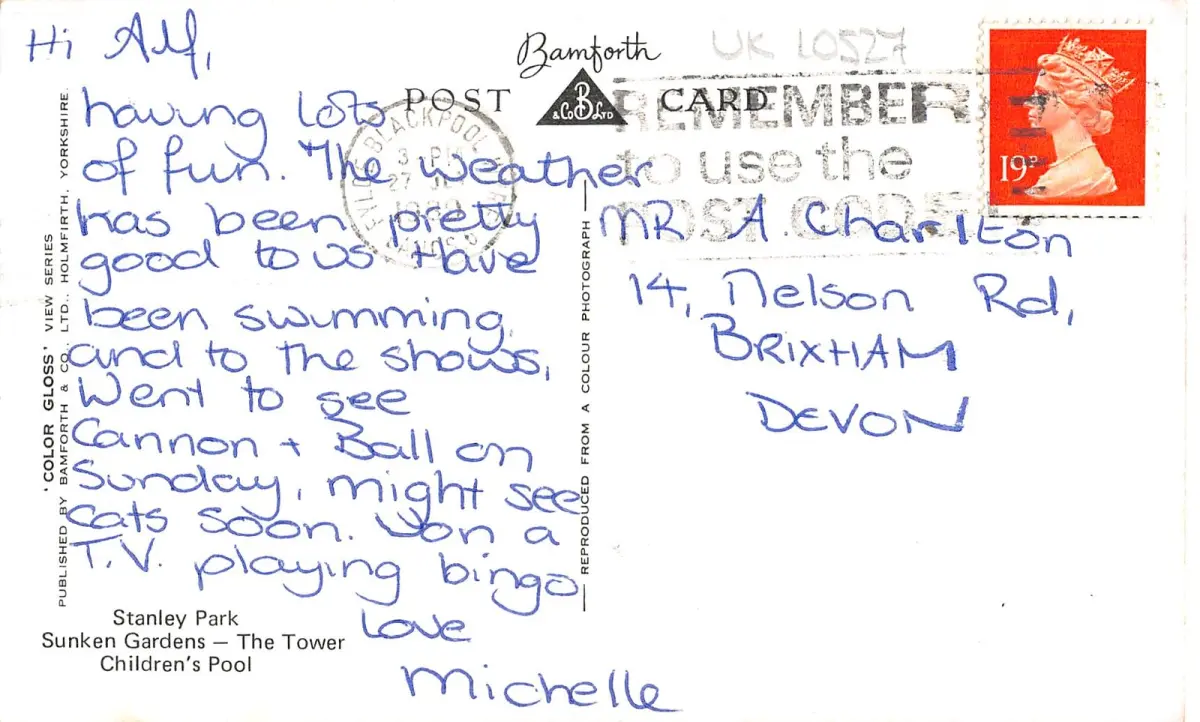 Hi Alf,
having lots
of fun. The weather
has been pretty
good to us Have
been swimming,
and to the shows,
Went to see
Cannon + Ball on
Sunday, might see
Cats soon. Won a
T.V. playing bingo,
Love
Michelle
Bamforth
POST CARD
B
& Co LTD
UK L0527
REMEMBER
to use the
POST CODE
BLACKPOOL
3 PM
27
19P
MR A. Charlton
14, Nelson Rd,
BRIXHAM
DEVON
'COLOR GLOSS' VIEW SERIES
PUBLISHED BY BAMFORTH & CO. LTD., HOLMFIRTH, YORKSHIRE
REPRODUCED FROM A COLOUR PHOTOGRAPH
Stanley Park
Sunken Gardens – The Tower
Children's Pool